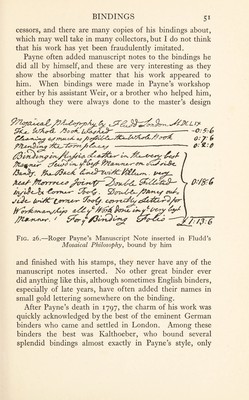 BINDINGS 51
cessors, and there are many copies of his bindings about,
which may well take in many collectors, but I do not think
that his work has yet been fraudulently imitated.
Payne often added manuscript notes to the bindings he
did all by himself, and these are very interesting as they
show the absorbing matter that his work appeared to
him. When bindings were made in Payne's workshop
either by his assistant Weir, or a brother who helped him,
although they were always done to the master's design
Mosaical Philosophy by Fludd London
The Whole Book Washed -0:5:6
Cleaning as much as possible the Whole Book 0:7:6
Mending the torn places 0:2:0
Binding in Leather in the very best
Manner Sew'd in the best Manner on
Bands. the Back lined with Vellum. very
neat Morrocco Joints Double Filleted 0:18:6
inside Corner Tools Double Panes out-
side with Corner Tools correctly Letter'd for
Workmanship all the Work done in the very best
Manner. For Binding Folio £1:13:6
FIG. 26.—Roger Payne's Manuscript Note inserted in Fludd's
Mosaical Philosophy, bound by him
and finished with his stamps, they never have any of the
manuscript notes inserted. No other great binder ever
did anything like this, although sometimes English binders,
especially of late years, have often added their names in
small gold lettering somewhere on the binding.
After Payne's death in 1797, the charm of his work was
quickly acknowledged by the best of the eminent German
binders who came and settled in London. Among these
binders the best was Kalthoeber, who bound several
splendid bindings almost exactly in Payne's style, only